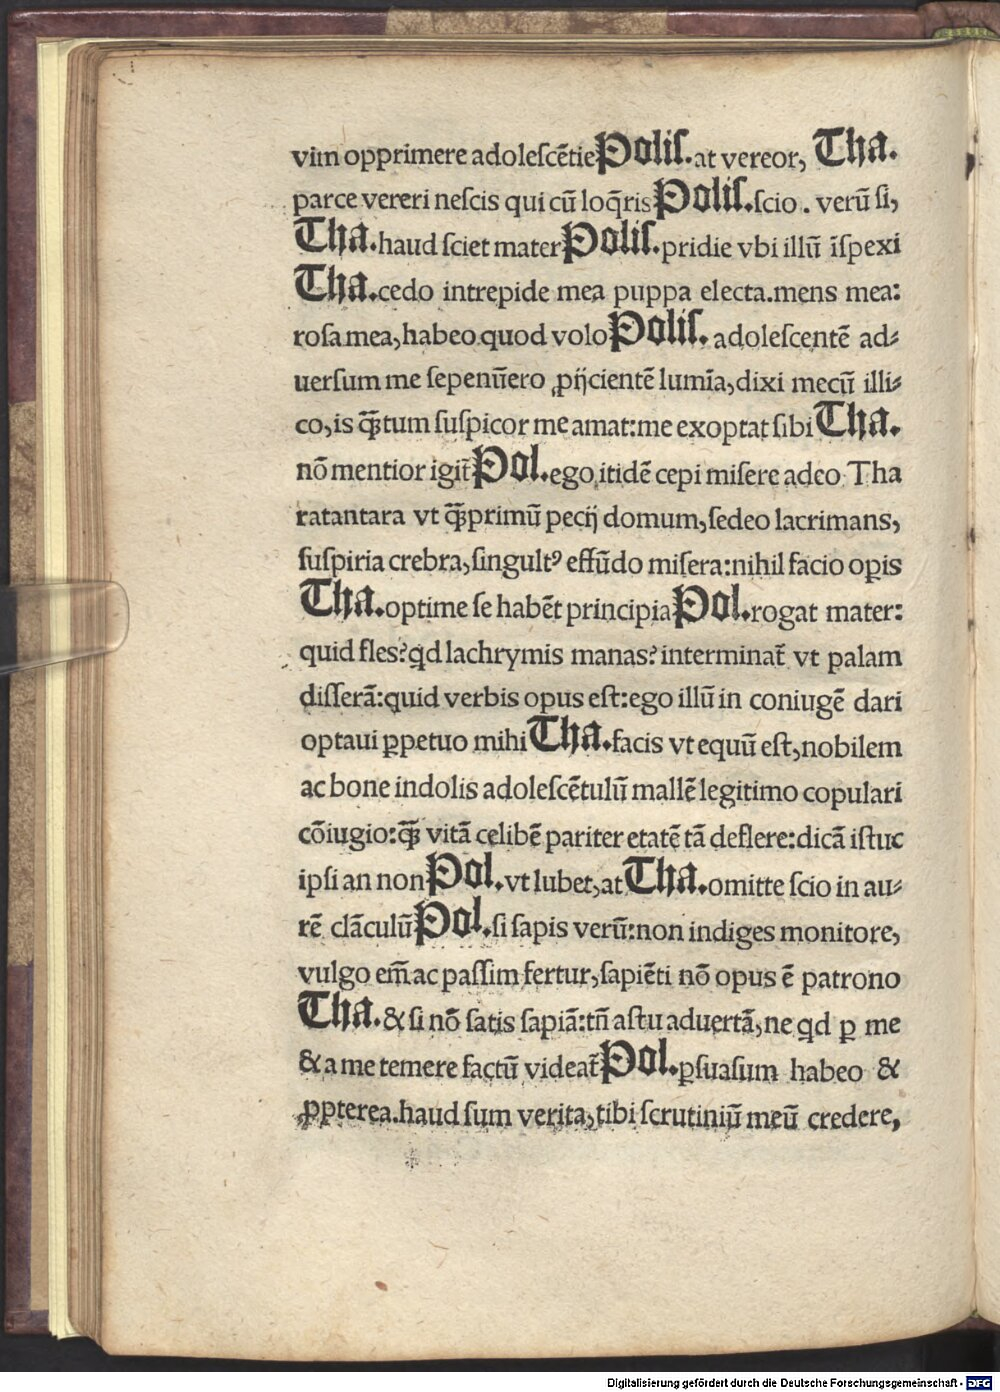 vim opprimere adoleſcẽtie Poliſ. at vereor, Tha.
parce vereri neſcis qui cũ loq̃ris Poliſ. ſcio . verũ ſi,
Tha. haud ſciet mater Poliſ. pridie vbi illũ ĩſpexi
Tha. cedo intrepide mea puppa electa. mens mea:
roſa mea, habeo quod volo Poliſ. adoleſcentẽ ad⸗
uerſum me ſepenũero ꝓijcientẽ lumĩa, dixi mecũ illi⸗
co, is q̃ꝫtum ſuſpicor me amat: me exoptat ſibi Tha.
nõ mentior igit̃ Pol. ego itidẽ cepi miſere adeo Tha
ratantara vt q̃ꝫprimũ pecij domum, ſedeo lacrimans,
ſuſpiria crebra, ſingultꝰ effũdo miſera: nihil facio opis
Tha. optime ſe habẽt principia Pol. rogat mater:
quid fles? qd lachrymis manas? interminat̃ vt palam
diſſerã: quid verbis opus eſt: ego illũ in coniugẽ dari
optaui ꝑpetuo mihi Tha. facis vt equũ eſt, nobilem
ac bone indolis adoleſcẽtulũ mallẽ legitimo copulari
cõiugio: q̃ꝫ vitã celibẽ pariter etatẽ tã deflere: dicã iſtuc
ipſi an non Pol. vt lubet, at Tha. omitte ſcio in au⸗
rẽ clãculũ Pol. ſi ſapis verũ: non indiges monitore,
vulgo em̃ ac paſſim fertur, ſapiẽti nõ opus ẽ patrono
Tha. & ſi nõ ſatis ſapiã: tñ aſtu aduertã, ne qd ꝑ me
& a me temere factũ videat̃ Pol. ꝑſuaſum habeo &
ꝓpterea. haud ſum verita, tibi ſcrutiniũ meũ credere,
Digitalisierung gefördert durch die Deutsche Forschungsgemeinschaft - DFG